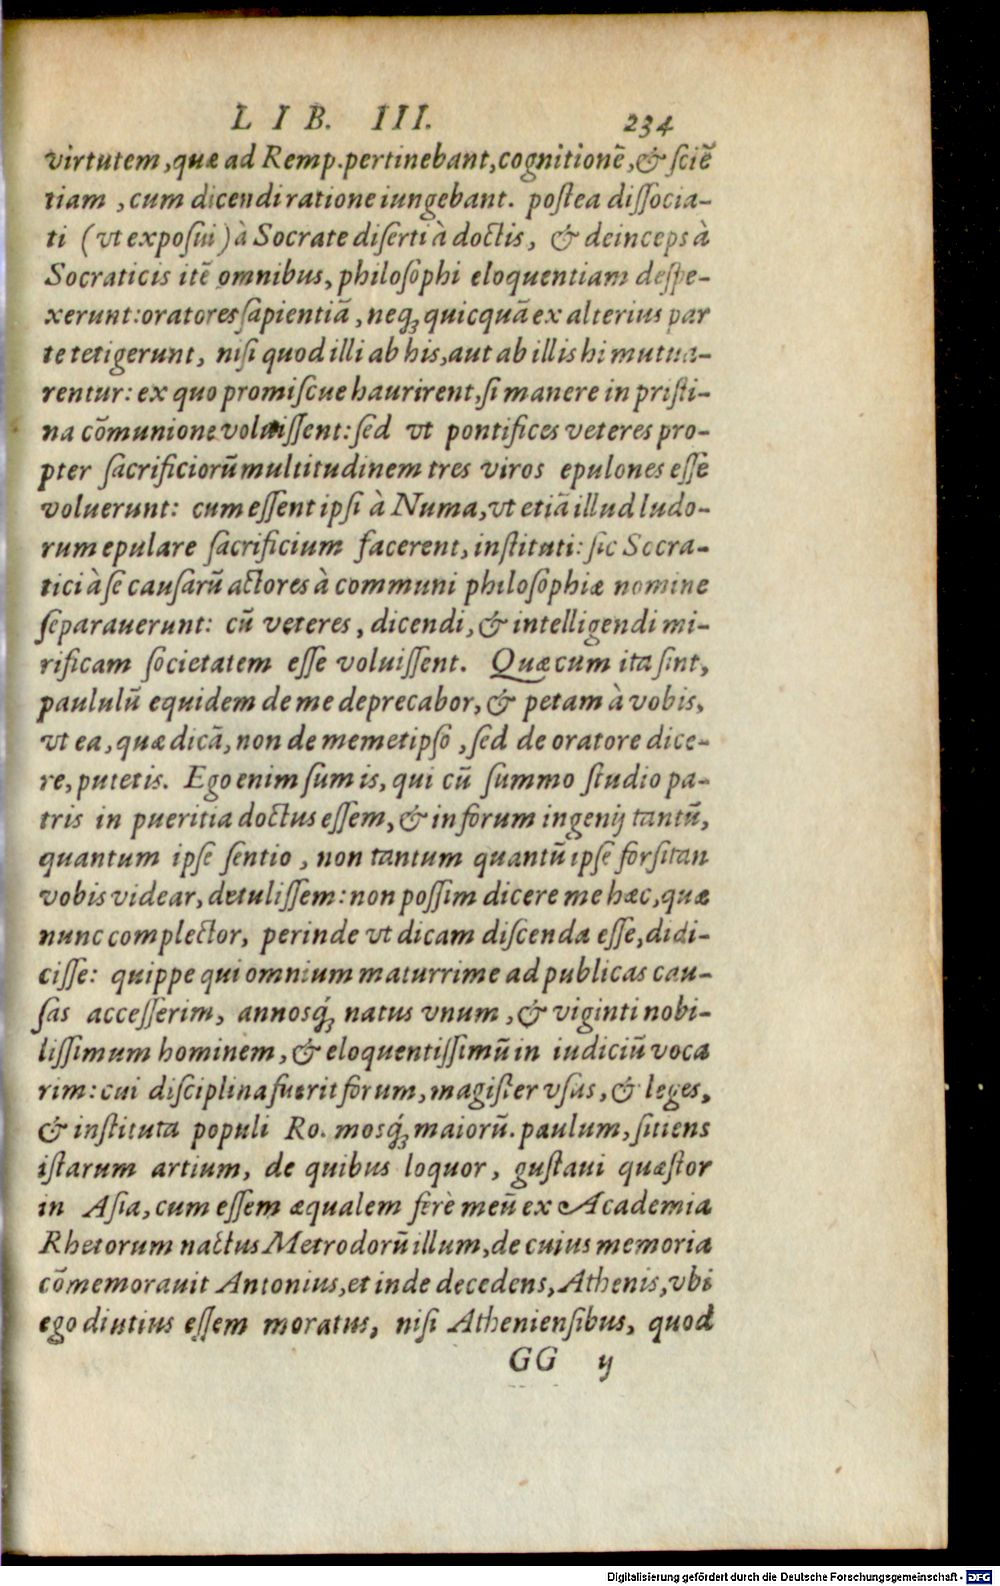 LIB. III. 234
virtutem, quæ ad Remp. pertinebant, cognitionē, & sciē
tiam, cum dicendi ratione iungebant. postea dissocia-
ti (vt exposui) à Socrate diserti à doctis, & deinceps à
Socraticis itē omnibus, philosophi eloquentiam despe-
xerunt: oratores sapientiā, neq; quicquā ex alterius par
te tetigerunt, nisi quod illi ab his, aut ab illis hi mutua-
rentur: ex quo promiscue haurirent, si manere in pristi-
na cōmunione voluissent: sed vt pontifices veteres pro-
pter sacrificiorū multitudinem tres viros epulones esse
voluerunt: cum essent ipsi à Numa, vt etiā illud ludo-
rum epulare sacrificium facerent, instituti: sic Socra-
tici à se causarū actores à communi philosophiæ nomine
separauerunt: cū veteres, dicendi, & intelligendi mi-
rificam societatem esse voluissent. Quæ cum ita sint,
paululū equidem de me deprecabor, & petam à vobis,
vt ea, quæ dicā, non de memetipso, sed de oratore dice-
re, putetis. Ego enim sum is, qui cū summo studio pa-
tris in pueritia doctus essem, & in forum ingenij tantū,
quantum ipse sentio, non tantum quantū ipse forsitan
vobis videar, detulissem: non possim dicere me hæc, quæ
nunc complector, perinde vt dicam discenda esse, didi-
cisse: quippe qui omnium maturrime ad publicas cau-
sas accesserim, annosq́; natus vnum, & viginti nobi-
lissimum hominem, & eloquentissimū in iudiciū voca
rim: cui disciplina fuerit forum, magister vsus, & leges,
& instituta populi Ro. mosq́; maiorū. paulum, sitiens
istarum artium, de quibus loquor, gustaui quæstor
in Asia, cum essem æqualem ferè meū ex Academia
Rhetorum nactus Metrodorū illum, de cuius memoria
cōmemorauit Antonius, et inde decedens, Athenis, vbi
ego diutius essem moratus, nisi Atheniensibus, quod
GG ij
Digitalisierung gefördert durch die Deutsche Forschungsgemeinschaft - DFG